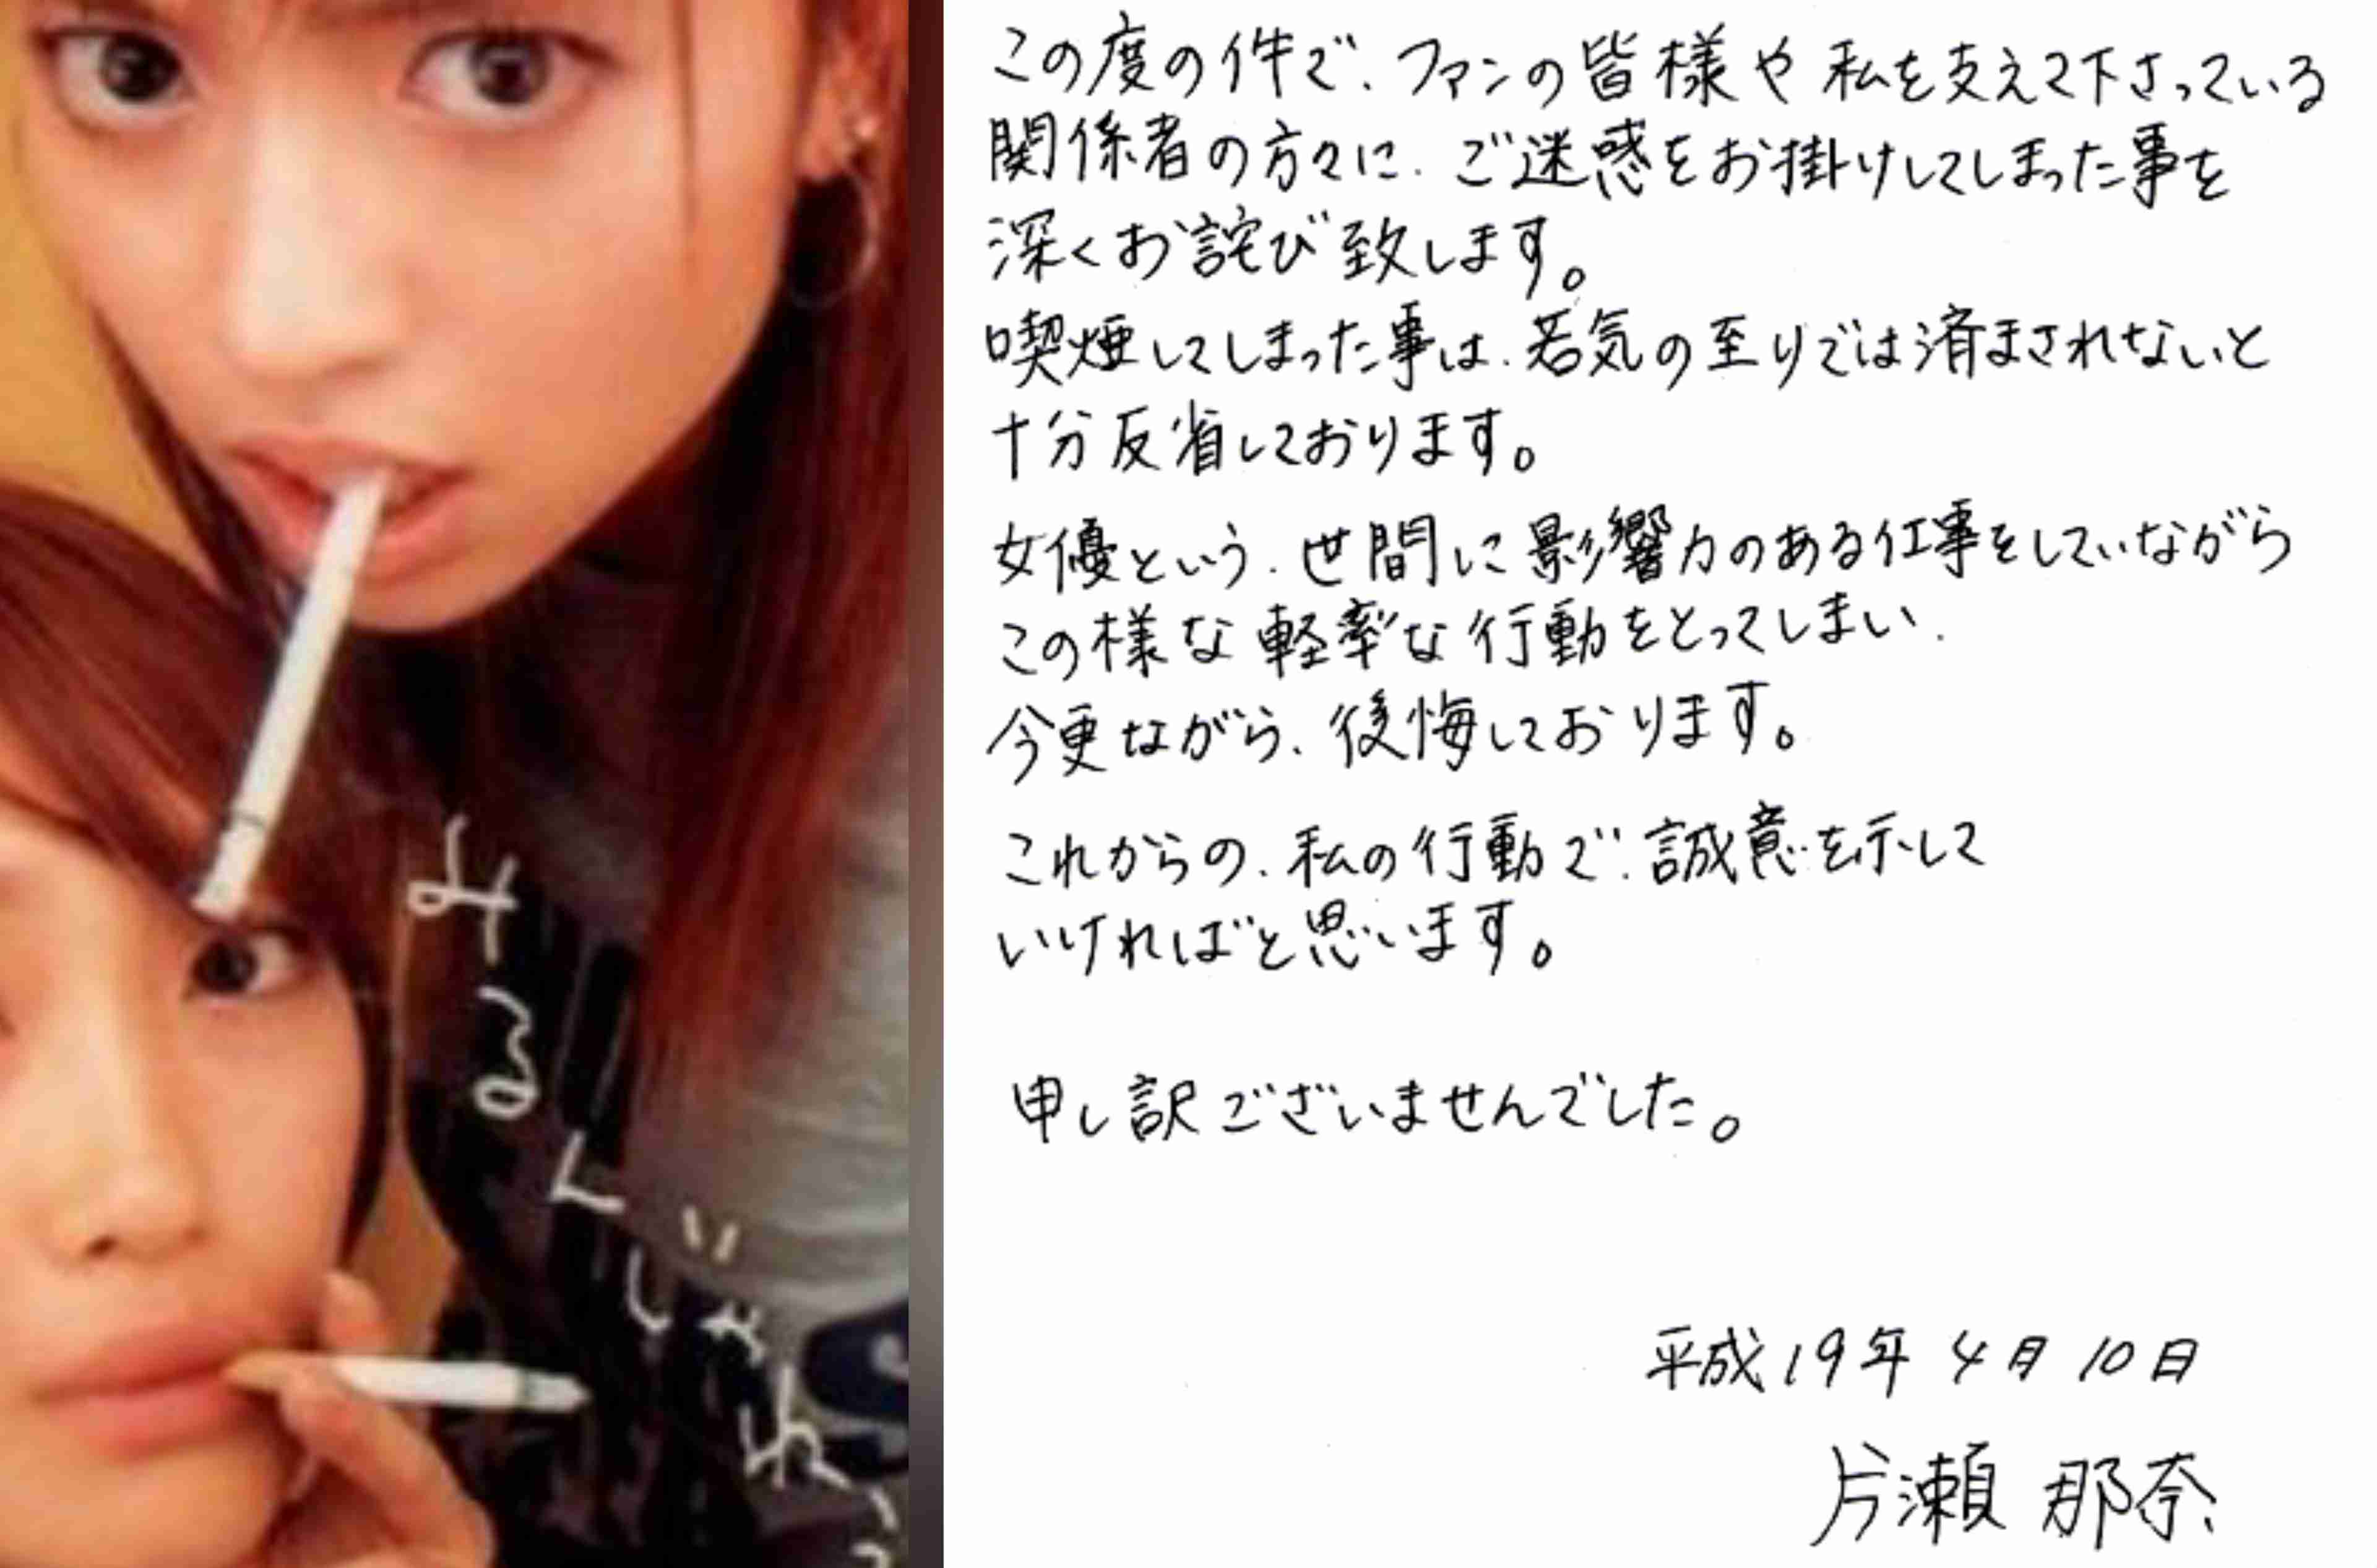 みるんじゃねーっ
この度の件で、ファンの皆様や私を支えて下さっている
関係者の方々に、ご迷惑をお掛けしてしまった事を
深くお詫び致します。
喫煙してしまった事は、若気の至りでは済まされないと
十分反省しております。
女優という、世間に影響力のある仕事をしていながら
この様な軽率な行動をとってしまい、
今更ながら、後悔しております。
これからの、私の行動で、誠意を示して
いければと思います。
申し訳ございませんでした。
平成19年4月10日
片瀬那奈